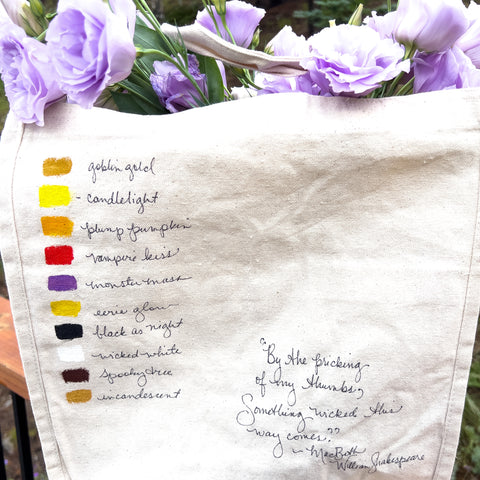 goblin gold
- candlelight
plump pumpkin
vampire kiss
monster mash
eerie glow
black as night
wicked white
Spooky tree
incandescent
"By the pricking
of my thumbs,
Something wicked this
way comes."
~ MacBeth
William Shakespeare